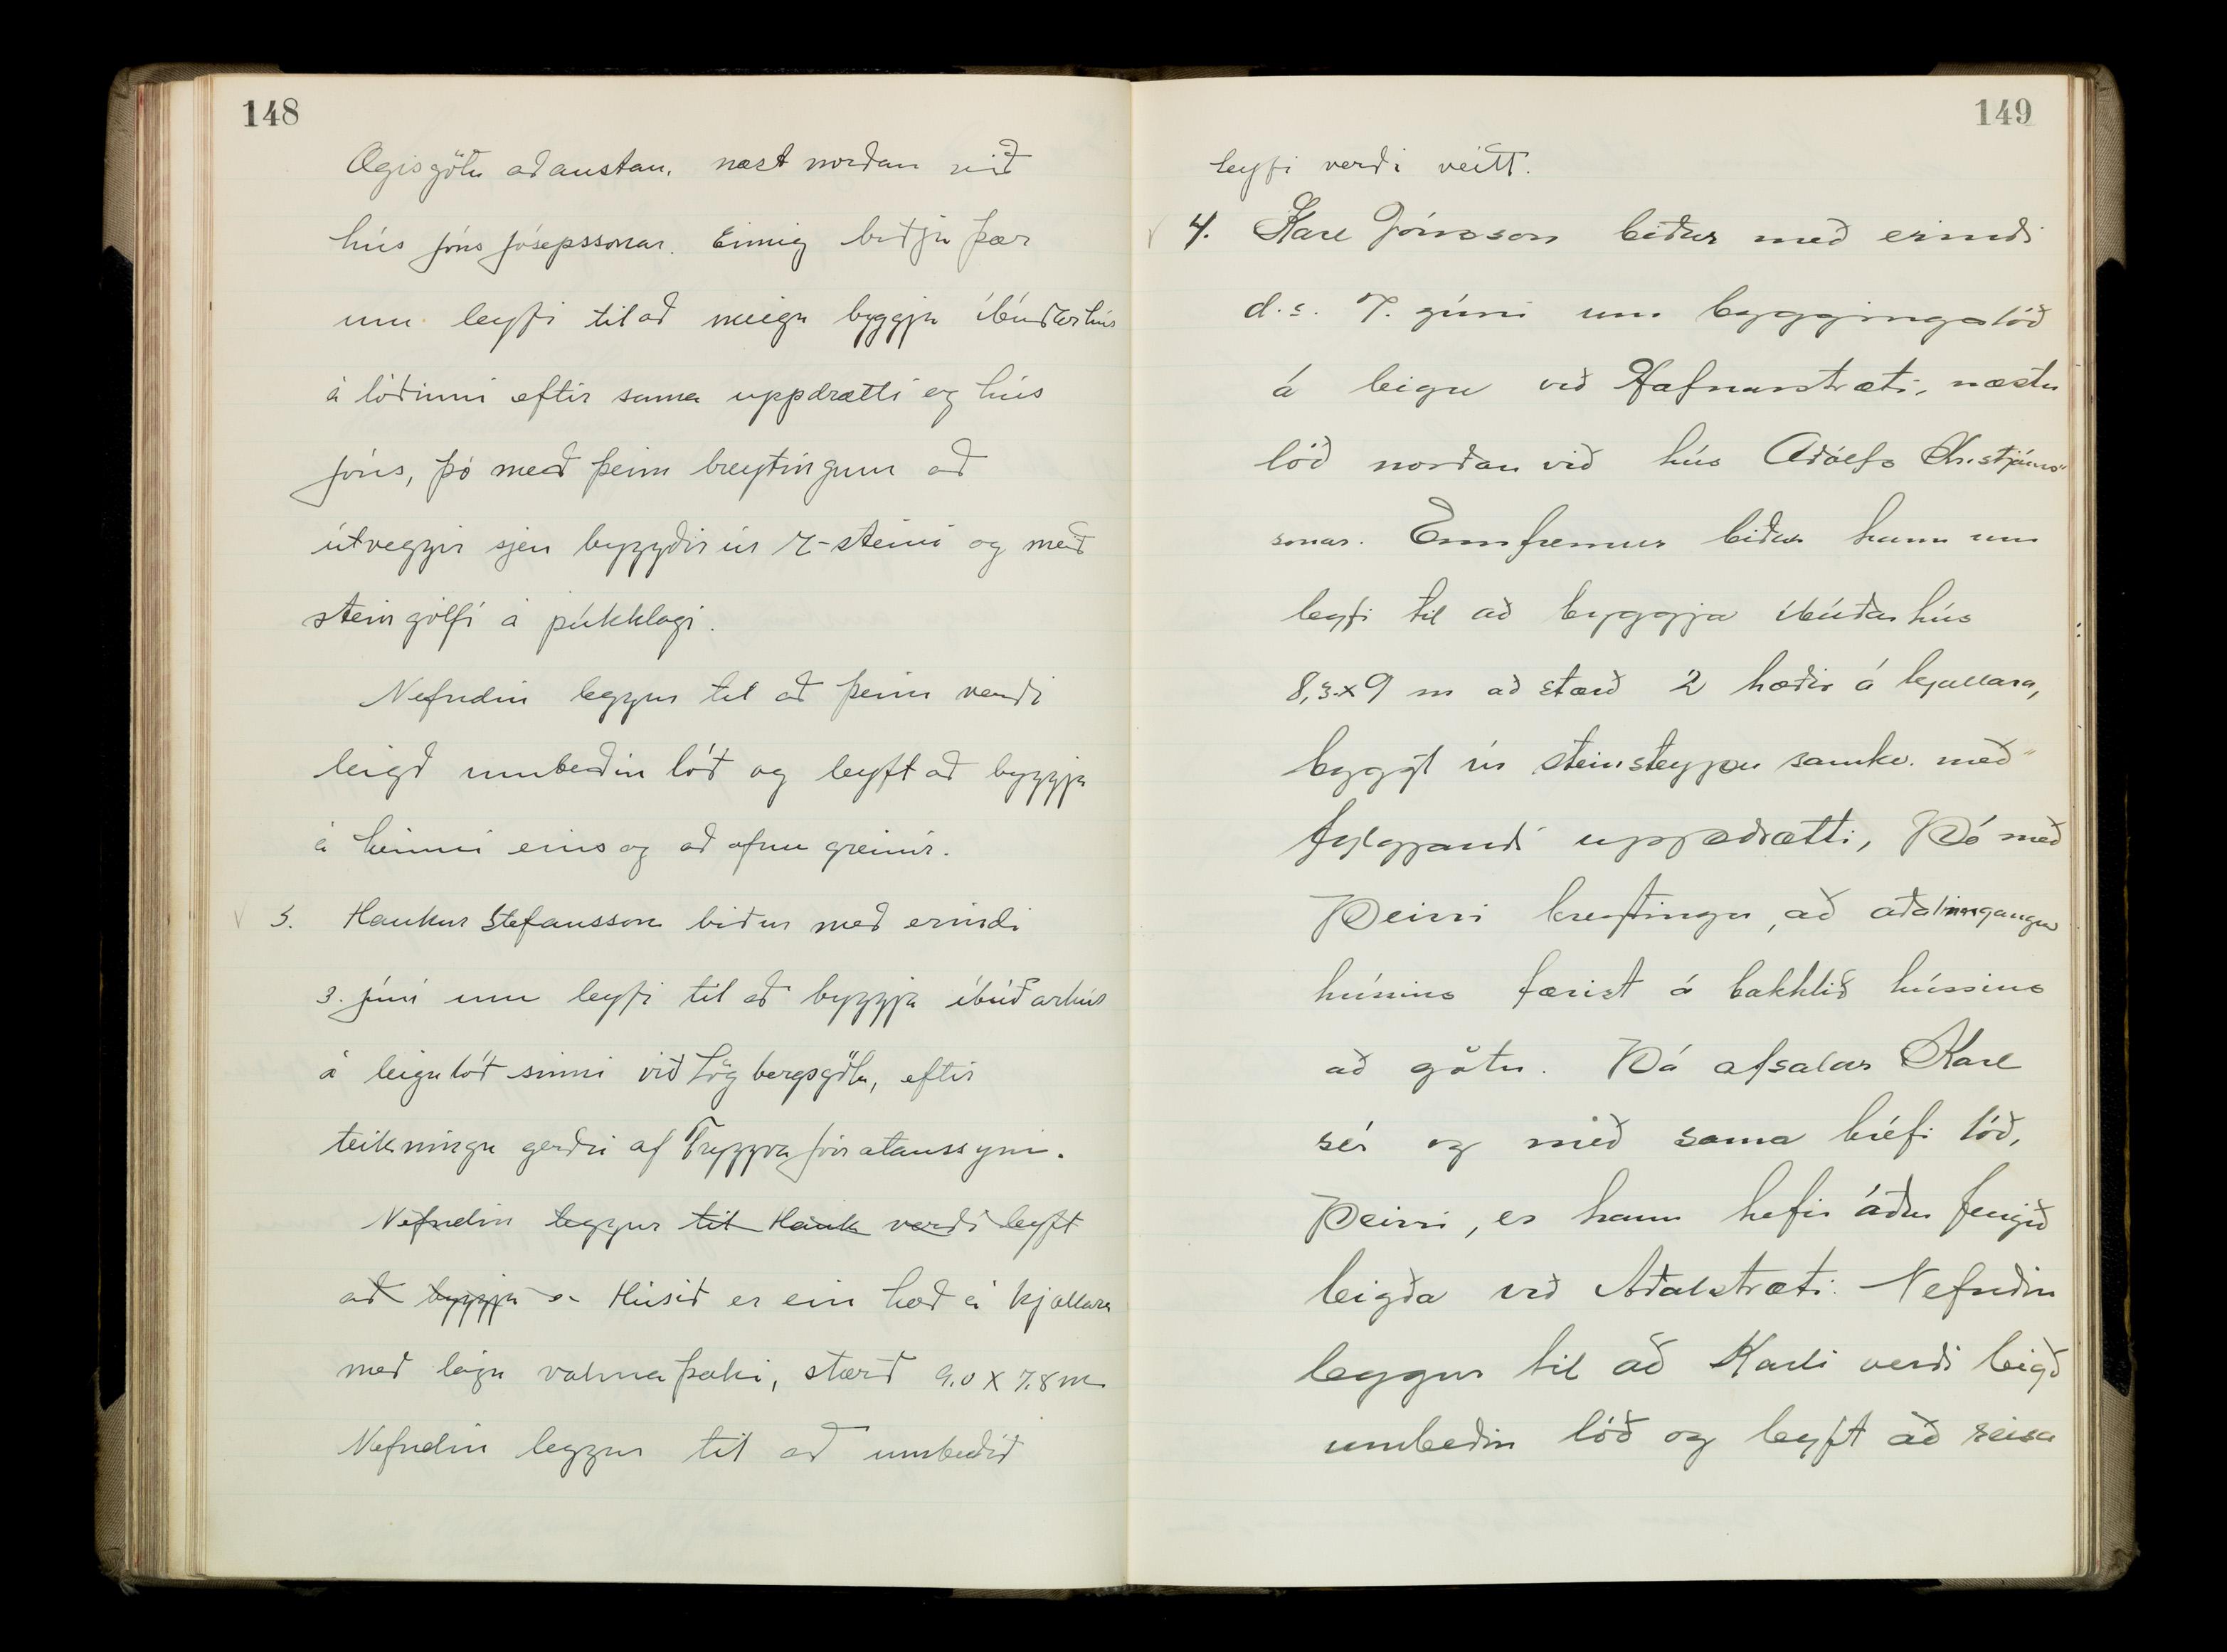 148
Ægisgötu að austan, næst norðan við
hús Jóns Jósepssonar. Einnig biðja þær
um leyfi til að meiga byggja íbúðarhús
á lóðinni eftir sama uppdrætti og hús
Jóns, þó með þeim breytingum að
útveggir sjeu byggðir úr r-steini og með
steingólfi á púkklagi.
Nefndin leggur til að þeim verði
leigð umbeðin lóð og leyft að byggja
á henni eins og að ofan greinir.
3. Haukur Stefansson biður með erindi
3. júní um leyfi til að byggja íbúðarhús
á leigulóð sinni við Lögbergsgötu, eftir
teikningu gerðri af Tryggva Jónatanssyni.
Nefndin leggur til Hauk verði leyft
að byggja a Húsið er ein hæð á kjallara
með lágu valmaþaki, stærð 9.0 x 7.8 m
Nefndin leggur til að umbeðið
149
leyfi verði veitt.
4. Karl Jónsson biður með erindi
d.s. 7. júní um byggingalóð
á leigu við Hafnarstræti, næstu
lóð norðan við hús Aðólfs Kristjáns"
sonar. Ennfremur biður hann um
leyfi til að byggja íbúðarhús
8,3 x 9 m að stærð 2 hæðir á kjallara,
byggt úr steinsteypu samkv. með"
fylgjandi uppdrætti, Þó með
Þeirri breytingu, að aðalinngangur
hússins færist á bakhlið hússins
að götu. Þá afsalar Karl
sér og með sama bréfi lóð,
Þeirri, er hann hefir áður fengið
leigða við Aðalstræti. Nefndin
leggur til að Karli verði leigð
umbeðin lóð og leyft að reisa